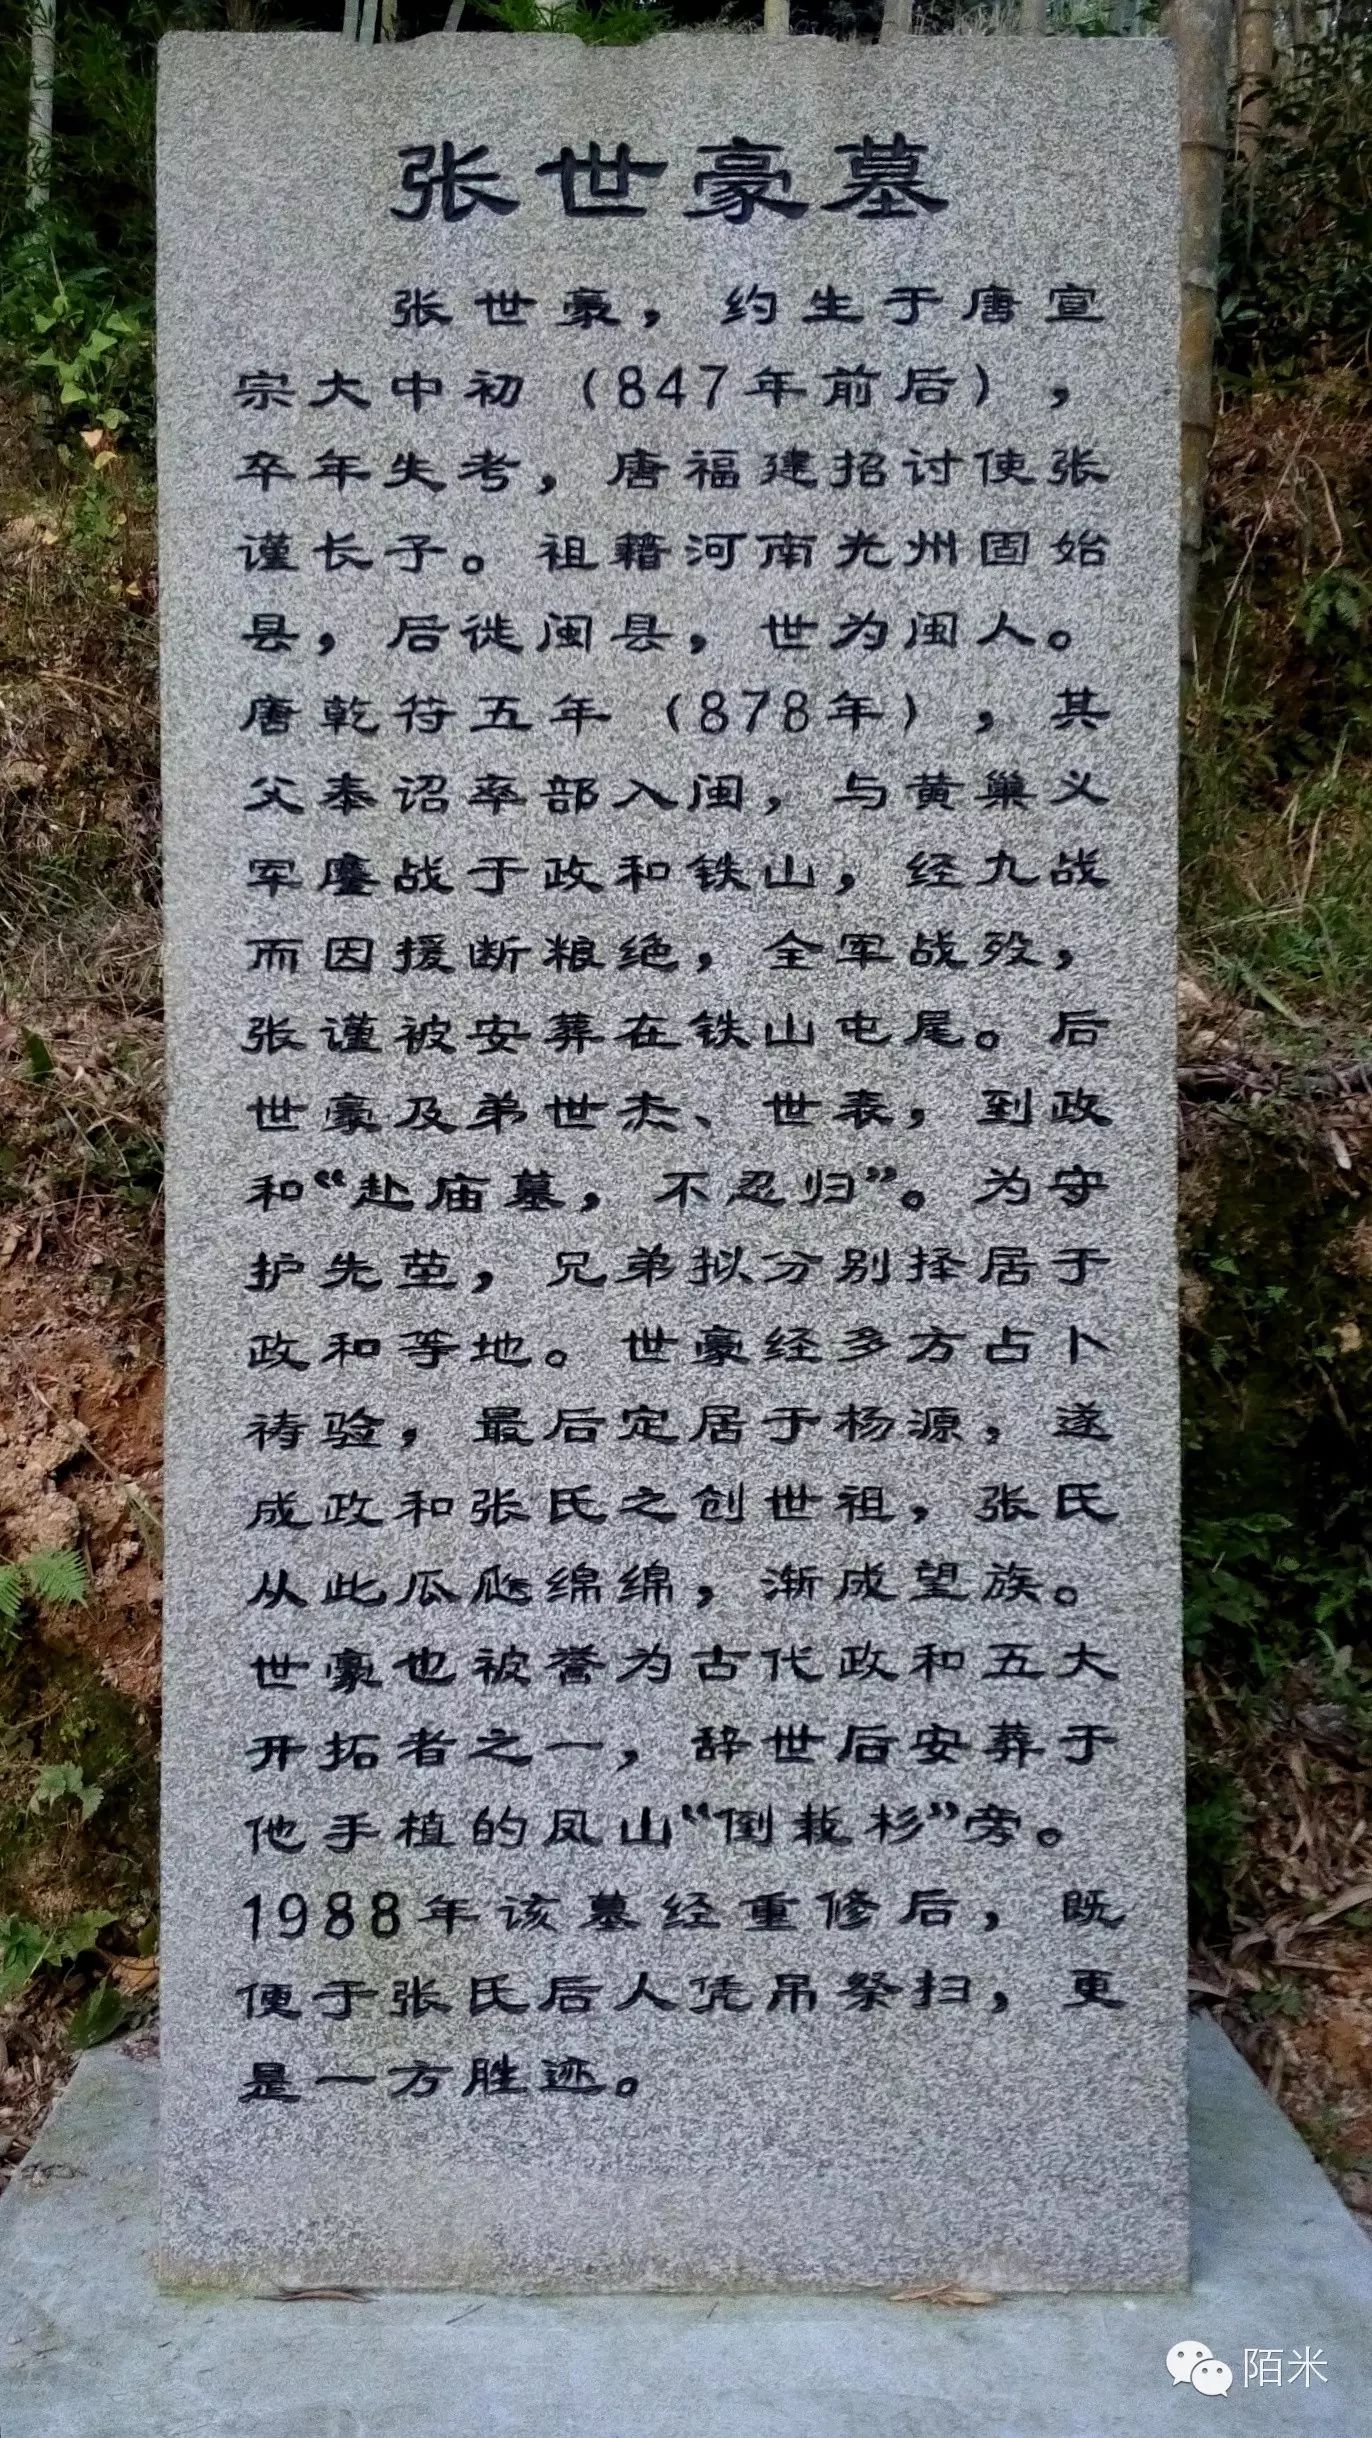 张世豪墓
张世豪，约生于唐宣
宗大中初（847年前后），
卒年失考，唐福建招讨使张
谨长子。祖籍河南光州固始
县，后徙闽县，世为闽人。
唐乾符五年（878年），其
父奉诏率部入闽，与黄巢义
军鏖战于政和铁山，经九战
而因援断粮绝，全军战殁，
张谨被安葬在铁山屯尾。后
世豪及弟世杰、世表，到政
和“赴庙墓，不忍归”。为守
护先茔，兄弟拟分别择居于
政和等地。世豪经多方占卜
祷验，最后定居于杨源，遂
成政和张氏之创世祖，张氏
从此瓜瓞绵绵，渐成望族。
世豪也被誉为古代政和五大
开拓者之一，辞世后安葬于
他手植的凤山“倒栽杉”旁。
1988年该墓经重修后，既
便于张氏后人凭吊祭扫，更
是一方胜迹。
陌米